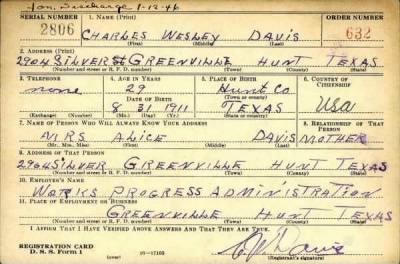 Hon. Discharge 1-12-46
SERIAL NUMBER 1. NAME (Print) ORDER NUMBER
2806 CHARLES WESLEY DAVIS 632
(First) (Middle) (Last)
2. ADDRESS (Print)
2904 SILVER St. GREENVILLE HUNT TEXAS
(Number and street or R. F. D. number) (Town) (County) (State)
3. TELEPHONE 4. AGE IN YEARS 5. PLACE OF BIRTH 6. COUNTRY OF CITIZENSHIP
none 29 Hunt Co
DATE OF BIRTH (Town or county)
8 31 1911 TEXAS USA
(Exchange) (Number) (Mo.) (Day) (Yr.) (State or country)
7. NAME OF PERSON WHO WILL ALWAYS KNOW YOUR ADDRESS 8. RELATIONSHIP OF THAT PERSON
MRS ALICE DAVIS MOTHER
(Mr., Mrs., Miss) (First) (Middle) (Last)
9. ADDRESS OF THAT PERSON
2904 SILVER GREENVILLE HUNT TEXAS
(Number and street or R. F. D. number) (Town) (County) (State)
10. EMPLOYER'S NAME
WORKS PROGRESS ADMINISTRATION
11. PLACE OF EMPLOYMENT OR BUSINESS
GREENVILLE HUNT TEXAS
(Number and street or R. F. D. number) (Town) (County) (State)
I AFFIRM THAT I HAVE VERIFIED ABOVE ANSWERS AND THAT THEY ARE TRUE.
REGISTRATION CARD
D. S. S. Form 1 16-17105 Davis
(Registrant's signature)